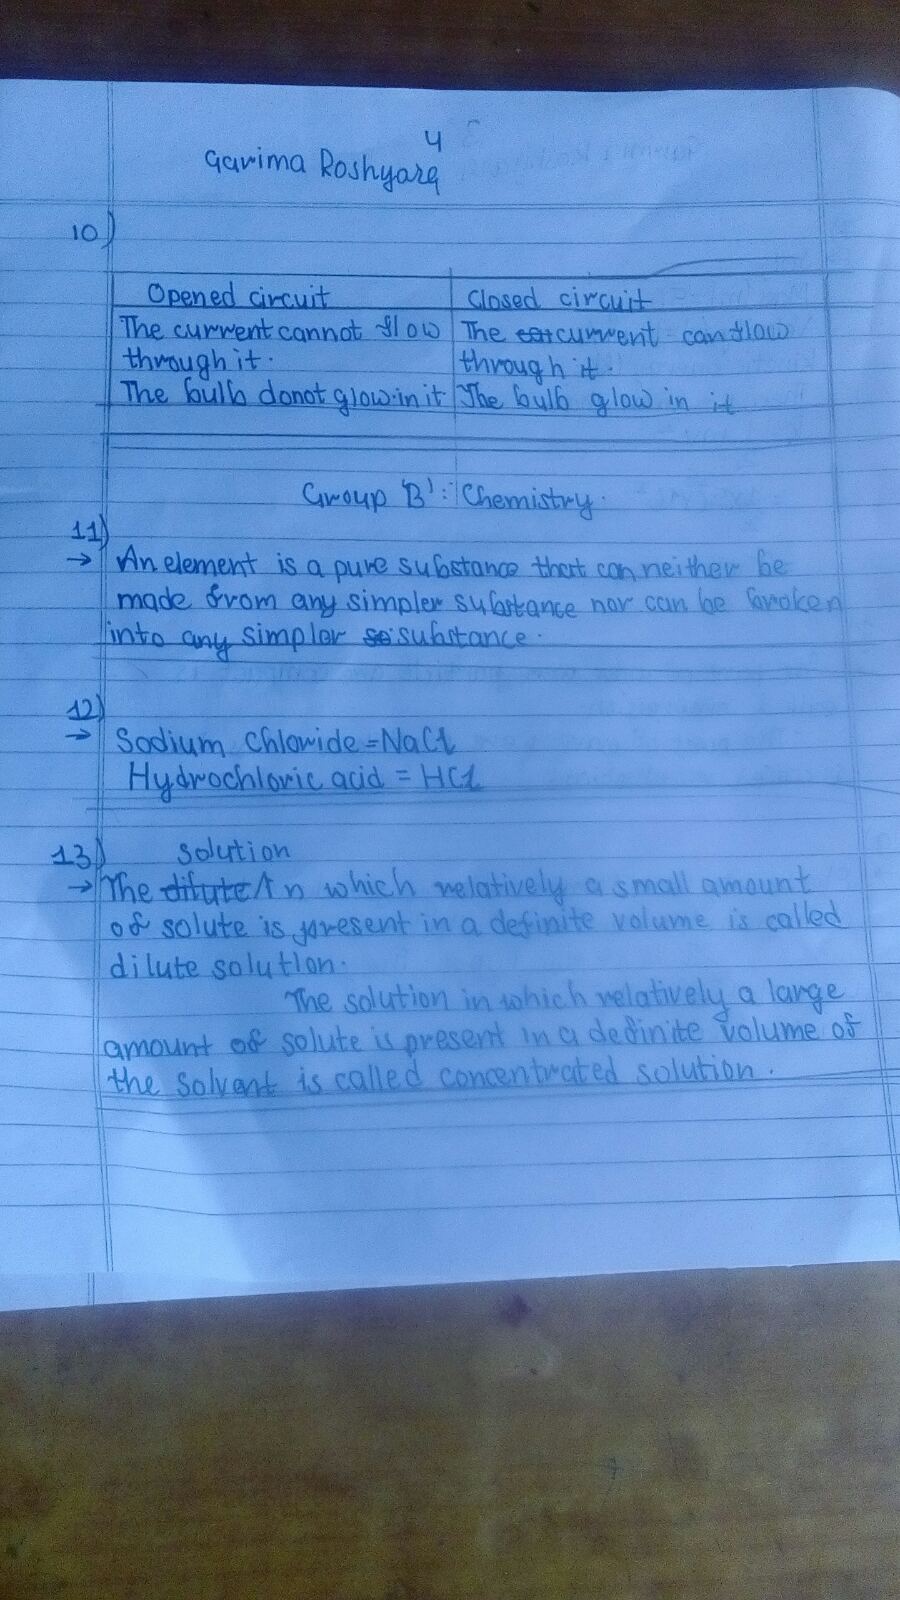 4
Garima Roshyara
10)
Opened circuit | Closed circuit
The current cannot flow | The current can flow
through it. | through it.
The bulb donot glow in it | The bulb glow in it
Group 'B': Chemistry.
11)
→ An element is a pure substance that can neither be
made from any simpler substance nor can be broken
into any simpler substance.
12)
→ Sodium Chloride = NaCl
Hydrochloric acid = HCl
13) solution
→ The dilute ∧ n which relatively a small amount
of solute is present in a definite volume is called
dilute solution.
The solution in which relatively a large
amount of solute is present in a definite volume of
the solvent is called concentrated solution.